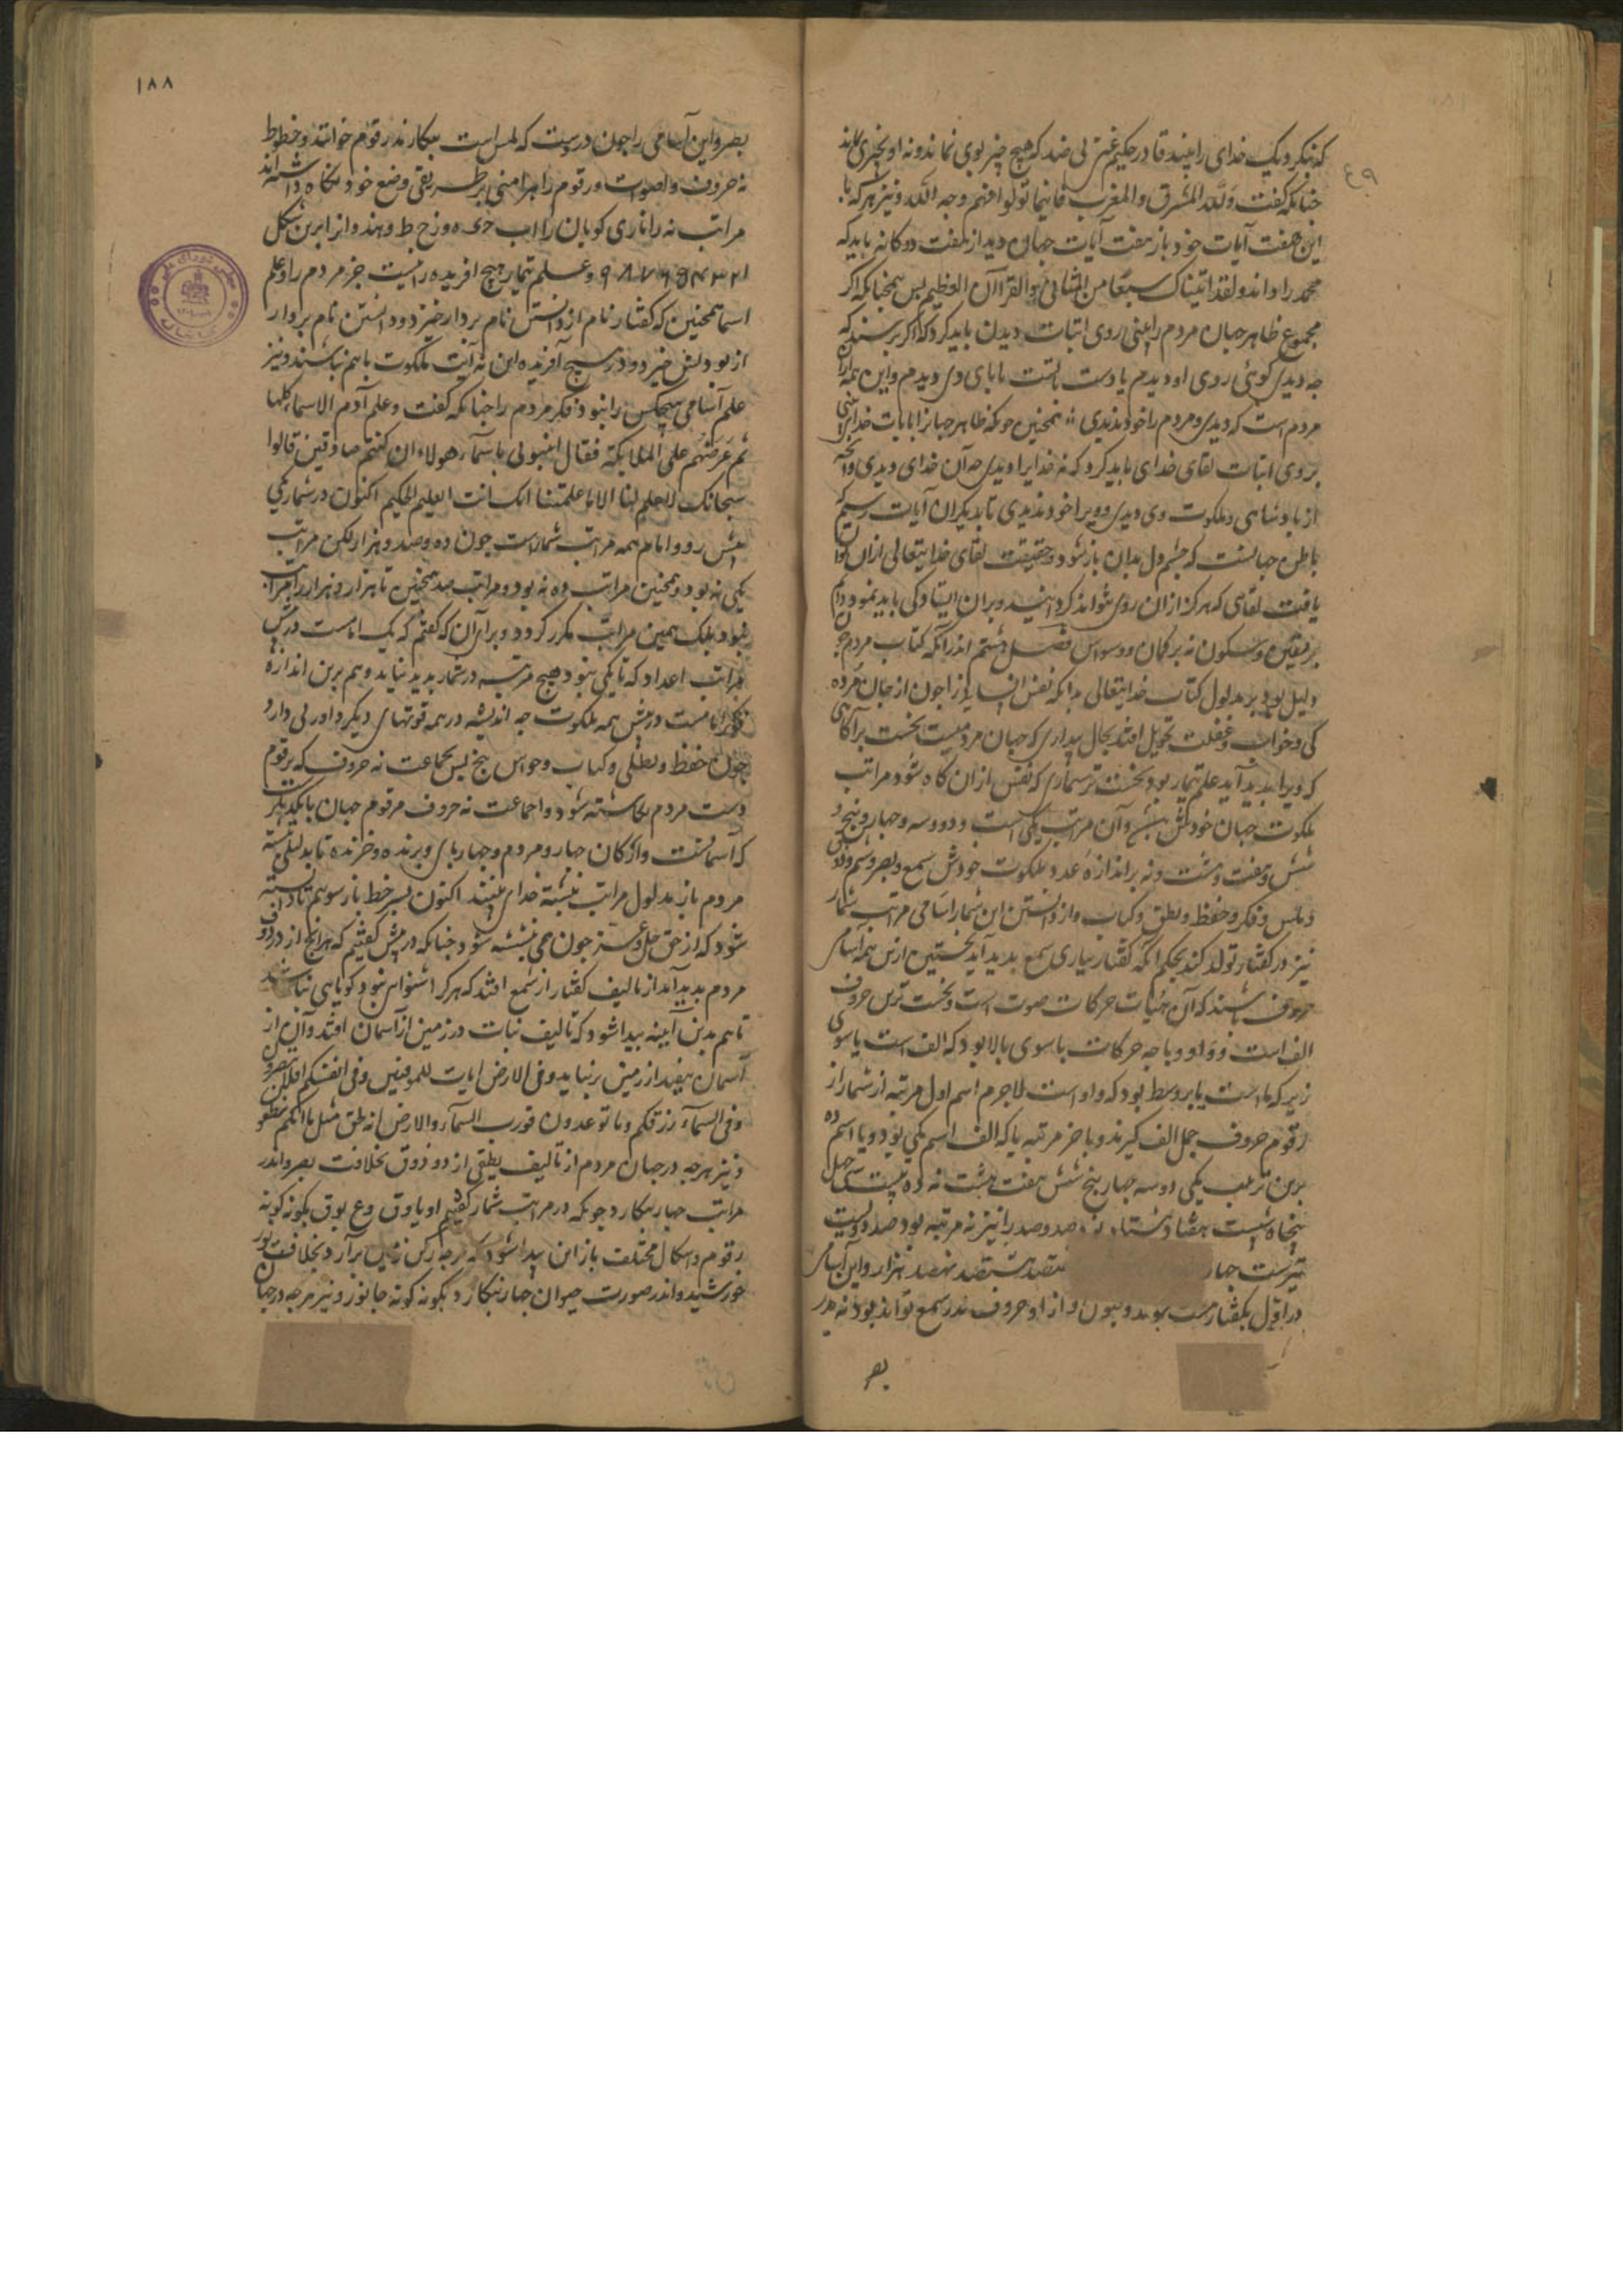 که بنگرد یک خدای را بیند قادر حکیم غنی بی ضد که هیچ چیز بوی نماند و نه او بچیزی ماند
چنانکه گفت ولله المشرق والمغرب فاینما تولوا فثم وجه الله و نیز هر که با
این هفت آیات خود باز هفت آیات جهان دید از هفت دوگانه باید که
محمد را داند ولقد اتیناک سبعا من المثانی والقرآن العظیم پس همچنانکه اگر
مجموع ظاهر جهان مردم را یعنی روی اثبات دیدن باید کرد که اگر پرسند که
چه دیدی گوئی روی او دیدم یا دست یا پشت یا پای وی دیدم و این همه
مردم است که دیدی و مردم را خود ندیدی همچنین چونکه ظاهر جهانرا بآیات خدا بینی
بروی اثبات لقای خدای باید کرد که نه خدایرا دیدی چه آن خدای دیدی و آنچه
از پادشاهی و ملکوت وی دیدی و ویرا خود ندیدی تا بدیگران آیات رسیم
باطن جهانست که چشم دل بدان باز شود و حقیقت لقای خدایتعالی از آن توان
یافت لقای که هرگز از آن روی نتواند گردانید و بران ایستادگی باید نمود دایم
بر یقین و سکون نه بر گمان و وسواس فصل هشتم اندر آنکه کتاب مردم چون
دلیل بود بر مدلول کتاب خدایتعالی بدانکه نفس انسانی را چون از حال مرده
گی و خواب و غفلت تحویل افتد بحال بیداری که جهان مردمیست نخست بر آگاهی
که ویرا پدید آید علم شمار بود نخست‌تر شماری که نفس از آن آگاه شود مراتب
ملکوت جهان خودش بیش و آن مراتب یکی است و دو و سه و چهار و پنج و
شش و هفت و هشت و نه بر اندازه عدد ملکوت خودش سمع و بصر و شم و ذوق
و لمس و فکر و حفظ و نطق و کتاب و از دانستن این شمار اسامی مراتب شمار
نیز در گفتار تولد کند بحکم آنکه گفتار بیاری سمع پدید آید نخستین از این همه اسامی
حروف باشند که آن هیئات حرکات صوت است و نخست ترین حروف
الف است و واو و یا چه حرکات یا سوی بالا بود که الف است یا سوی
زیر که یا است یا بر وسط بود که واو است لاجرم اسم اول مرتبه از شمار از
رقوم حروف جمل الف گیرند و با خر مرتبه یا که الف اسم یکی بود و یا اسم ده
برین ترتیب یکی دو سه چهار پنج شش هفت هشت نه ده بیست سی چهل
پنجاه شصت هفتاد هشتاد نود صد و صد را نیز نه مرتبه بود صد دویست
سیصد چهار هفتصد هشتصد نهصد هزار و این اسامی
در اول بگفتار هست بوند و چون آواز و حروف در سمع تواند بود نه در
بصر
۱۸۸
بصر و این اسامی را چون در دست که لمس است بنگارند رقوم خوانند و خطوط
نه حروف و اصوات و رقوم را هر امتی بر طریقی وضع خود نگاه داشته‌اند
مراتب نه را تازی گویان را اب ج د ه و ز ح ط و هندوانرا برین شکل
۱ ۲ ۳ ۴ ۵ ۶ ۷ ۸ ۹ و علم شمار هیچ آفریده را نیست جز مردم را و علم
اسما همچنین که گفتار نام از دانستن نام بردار خیزد و دانستن نام بردار
از بودنش خیزد و در هیچ آفریده این نه آیت ملکوت باهم نباشند و نیز
علم اسامی هیچکس را نبود مگر مردم را چنانکه گفت وعلم آدم الاسماء کلها
ثم عرضهم علی الملایکة فقال انبئونی باسماء هولاء ان کنتم صادقین قالوا
سبحانک لاعلم لنا الا ما علمتنا انک انت العلیم الحکیم اکنون در شمار یکی
پیش رو و امام همه مراتب شمارست چون ده و صد و هزار لکن مراتب
یکی نه بود و همچنین مراتب ده نه بود و مراتب صد همچنین تا هزار و هزار را مراتب
نبود بلک همین مراتب مکرر گردد و برابر آن که گفتم که یک امامست در پیش
مراتب اعداد که تا یکی نبود هیچ مرتبه در شمار پدید نیاید و هم برین اندازه
فکر امامست در پیش همه ملکوت چه اندیشه در همه قوتهای دیگر داوری دارد
چون حفظ و نطق و کتاب و حواس پنج پس بجماعت نه حروف که بر قوم
دست مردم نگاشته شود و اجماعت نه حروف مرقوم جهان با یکدیگر
که آسمانست و ارکان چهار و مردم و چهارپای و پرنده و خزنده تا بدلیلی نبشته
مردم باز مدلول مراتب نبشته خدای بینند اکنون بسر خط باز رسویم تا دانسته
شود که از حق جل و عز چون می نبشته شود چنانکه در پیش گفتیم که هر آنچ از در ذوق
مردم پدید آمد از تالیف گفتار از سمع افتد که هر کرا شنوایی نبود گویایی نباشد
تا هم بدین آیینه پیدا شود که تالیف نبات در زمین از آسمان افتد و آن از
آسمان نیفتد از زمین بر نیاید وفی الارض ایات للموقنین وفی انفسکم افلا تبصرون
وفی السماء رزقکم وما توعدون فورب السماء والارض انه لحق مثل ما انکم تنطقون
و نیز هر چه در جهان مردم از تالیف نطقی از دو ذوق بخلافت بصر و اندر
مراتب چهار نگارد چونکه در مراتب شمار گفتیم او یا و ق و ع بوق بگونه گونه
رقوم و اشکال مختلف باز این پیدا شود که هر چه ارکان زمین برآرد بخلافت نور
خورشید و اندر صورت حیوان چهار نگارد بگونه گونه جانور و نیز هر چه در جهان